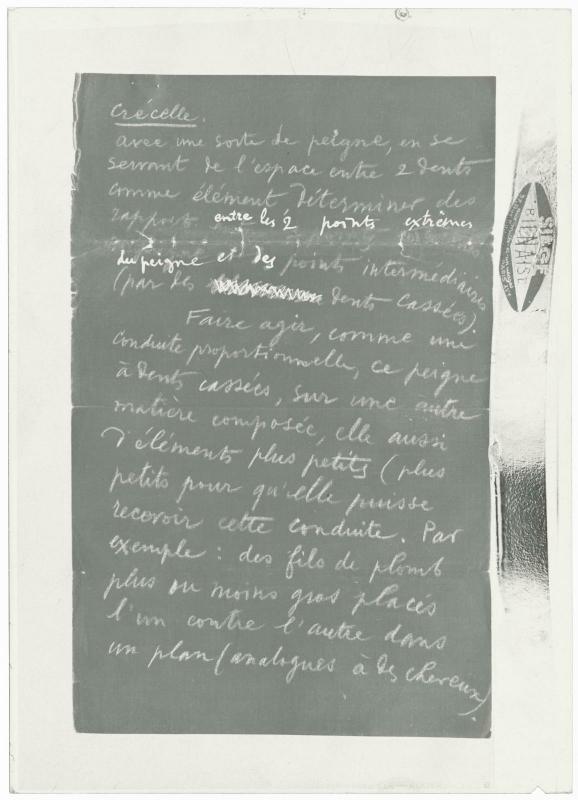 Crécelle.
avec une sorte de peigne, en se
servant de l'espace entre 2 dents
comme élément Déterminer des
rapports entre les 2 points extrêmes
du peigne et des points intermediaires
(par des dents cassées).
Faire agir, comme une
conduite proportionnelle, ce peigne
à dents cassées, sur une autre
matière composée, elle aussi
D'éléments plus petits (plus
petits pour qu'elle puisse
recevoir cette conduite. Par
exemple : des fils de plomb
plus ou moins gros placés
l'un contre l'autre dans
un plan (analogues à des cheveux).
SIEGE
BIENAISE